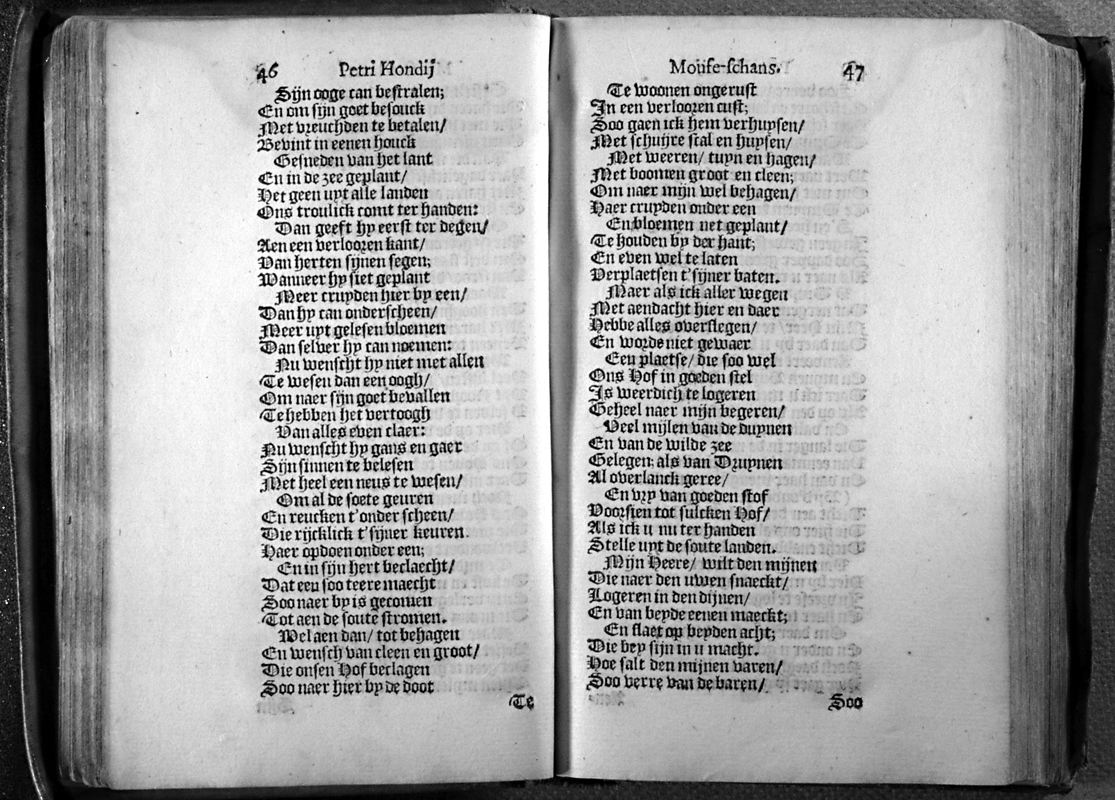 46 Petri Hondij
Sijn ooge can bestralen;
En om sijn goet besouck
Met vreuchden te betalen/
Bevint in eenen houck
Gesneden van het lant
En in de zee geplant/
Het geen uyt alle landen
Ons troulick comt ter handen:
Dan geeft hy eerst ter degen/
Aen een verlooren kant/
Van herten sijnen segen;
Wanneer hy siet geplant
Meer cruyden hier by een/
Dan hy can onderscheen/
Meer uyt gelesen bloemen
Dan selver hy can noemen:
Nu wenscht hy niet met allen
Te wesen dan een oogh/
Om naer sijn goet bevallen
Te hebben het vertoogh
Van alles even claer:
Nu wenscht hy gans en gaer
Sijn sinnen te belesen
Met heel een neus te wesen/
Om al de soete geuren
En reucken t'onder scheen/
Die rijcklick t'sijner keuren
Haer opdoen onder een;
En in sijn hert beclaecht/
Dat een soo teere maecht
Soo naer by is gecomen
Tot aen de soute stromen.
Wel aen dan/ tot behagen
En wensch van cleen en groot/
Die onsen Hof beclagen
Soo naer hier by de doot
Te
Mouse-schans. 47
Te woonen ongerust
In een verlooren cust;
Soo gaen ick hem verhuysen/
Met schuijre stal en huysen/
Met weeren/ tuyn en hagen/
Met boomen groot en cleen;
Om naer mijn wel behagen/
Haer cruyden onder een
En bloemen net geplant/
Te houden by der hant;
En even wel te laten
Verplaetsen t'sijner baten.
Maer als ick aller wegen
Met aendacht hier en daer
Hebbe alles overslegen/
En worde niet gewaer
Een plaetse/ die soo wel
Ons Hof in goeden stel
Is weerdich te logeren
Geheel naer mijn begeren/
Veel mijlen van de duynen
En van de wilde zee
Gelegen; als van Druynen
Al overlanck geree/
En vry van goeden stof
Voorsien tot sulcken Hof/
Als ick u nu ter handen
Stelle uyt de soute landen.
Mijn Heere/ wilt den mijnen
Die naer den uwen snaeckt/
Logeren in den dijnen/
En van beyde eenen maeckt;
En slaet op beyden acht;
Die bey sijn in u macht.
Hoe salt den mijnen varen/
Soo verre van de baren/
Soo